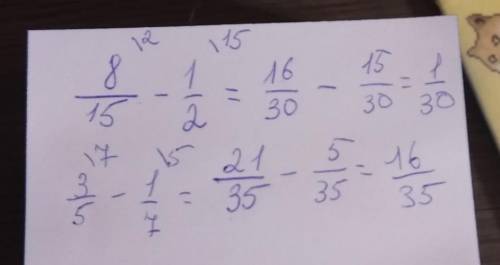 8/15 \2 - 1/2 \15 = 16/30 - 15/30 = 1/30
3/5 \7 - 1/7 \5 = 21/35 - 5/35 = 16/35